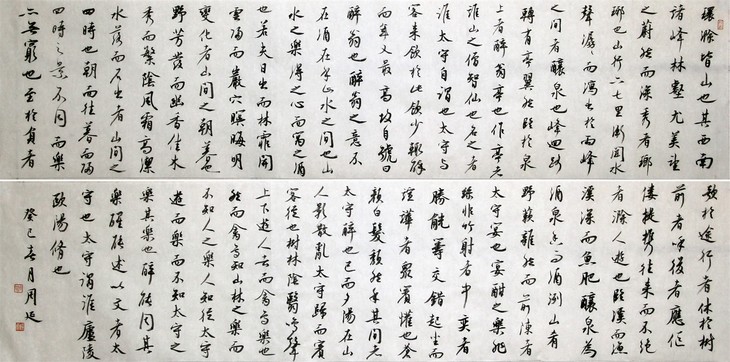 環滁皆山也其西南
諸峰林壑尤美望
之蔚然而深秀者瑯
琊也山行六七里漸聞水
聲潺潺而瀉出於兩峰
之間者釀泉也峰回路
轉有亭翼然臨於泉
上者醉翁亭也作亭者
誰山之僧智仙也名之者
誰太守自謂也太守與
客來飲於此飲少輒醉
而年又最高故自號曰
醉翁也醉翁之意不
在酒在乎山水之間也山
水之樂得之心而寓之酒
也若夫日出而林霏開
雲歸而巖穴暝晦明
變化者山間之朝暮也
野芳發而幽香佳木
秀而繁陰風霜高潔
水落而石出者山間之
四時也朝而往暮而歸
四時之景不同而樂
亦無窮也至於負者
歌於途行者休於樹
前者呼後者應伛
僂提攜往來而不絕
者滁人遊也臨溪而漁
溪深而魚肥釀泉為
酒泉香而酒洌山肴
野蔌雜然而前陳者
太守宴也宴酣之樂非
絲非竹射者中奕者
勝觥籌交錯起坐而
諠譁者眾賓懽也蒼
顏白髮頹然乎其間者
太守醉也已而夕陽在山
人影散亂太守歸而賓
客從也樹林陰翳鳴聲
上下遊人去而禽鳥樂也
然而禽鳥知山林之樂而
不知人之樂人知從太守
遊而樂而不知太守之
樂其樂也醉能同其
樂醒能述以文者太
守也太守謂誰廬陵
歐陽脩也
癸巳春月周延